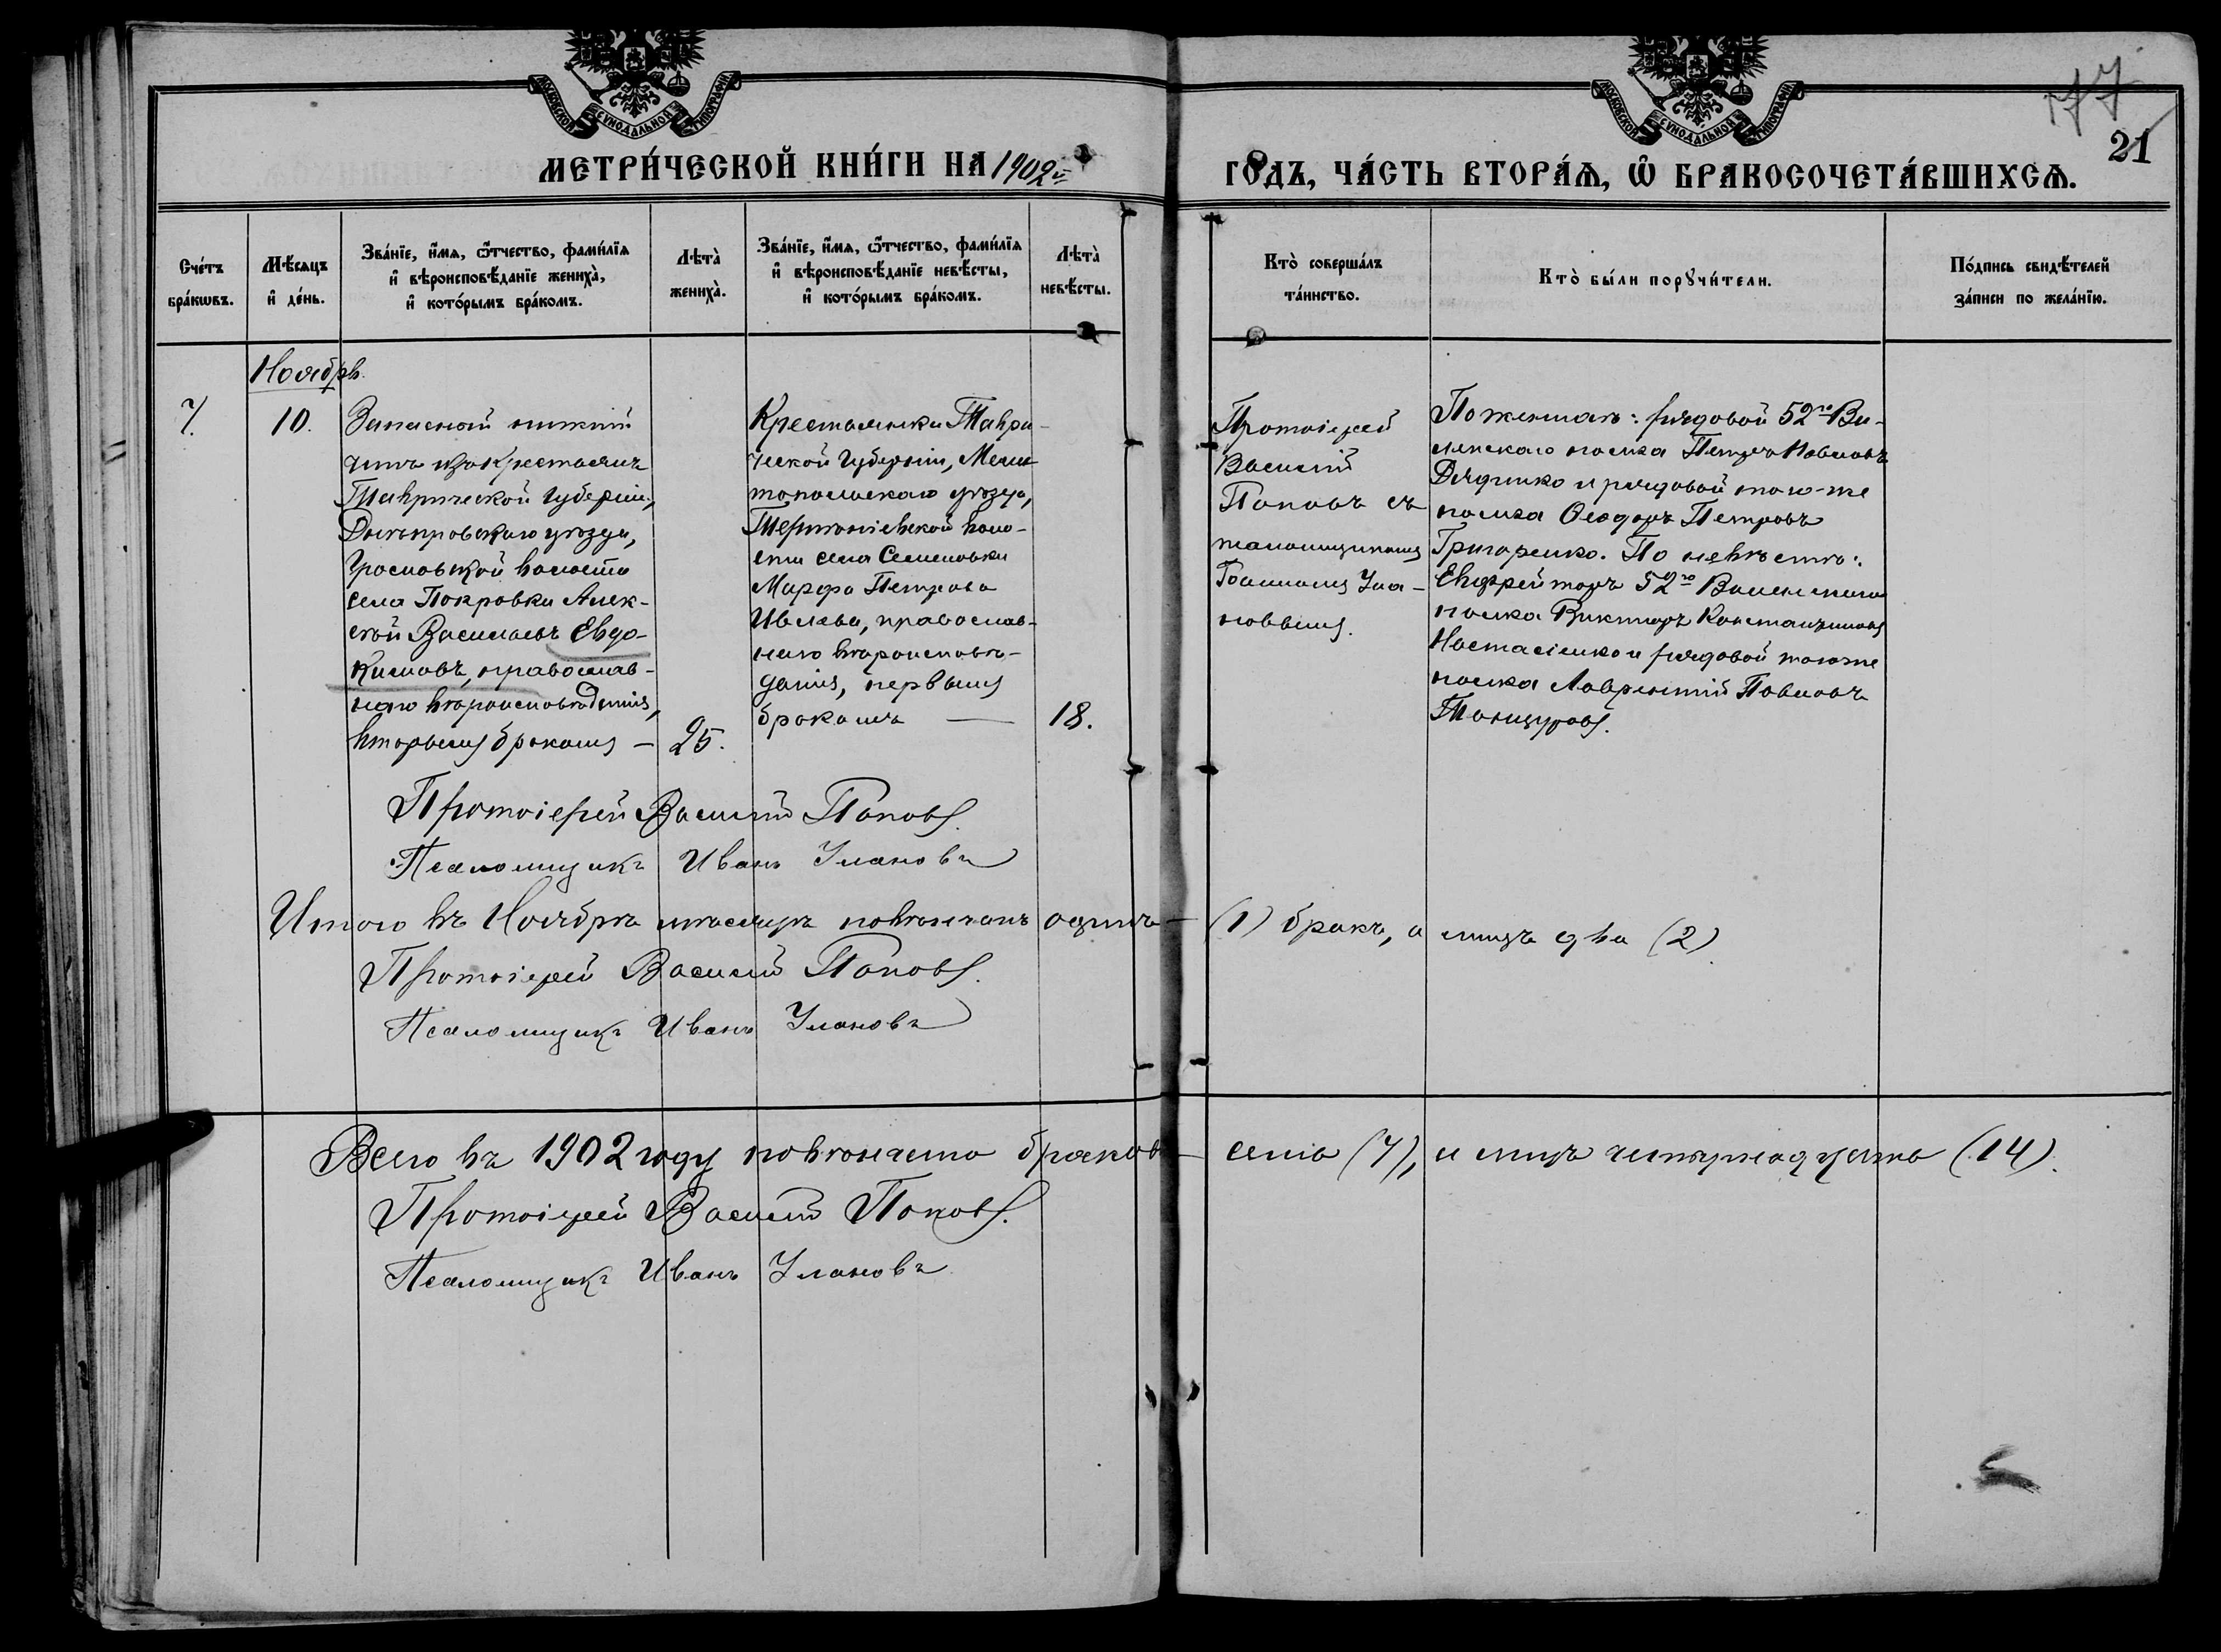 77
21
МОСКОВСКОЙ СѴНОДАЛЬНОЙ ТИПОГРАФІИ
МОСКОВСКОЙ СѴНОДАЛЬНОЙ ТИПОГРАФІИ
МЕТРИ́ЧЕСКОЙ КНИ́ГИ НА 1902й
ГОДЪ, ЧА́СТЬ ВТОРА́Ѧ, Ѽ БРАКОСОЧЕТА́ВШИХСѦ.
Сче́тъ
бра́кѡвъ.
Мѣ́сѧцъ
и҆ де́нь.
Зва́нїе, и҆́мѧ, ѻ҆́тчество, фами́лїѧ
и҆ вѣроисповѣ́данїе жениха̀,
и҆ кото́рымъ бра́комъ.
Лѣта̀
жениха̀.
Зва́нїе, и҆́мѧ, ѻ҆́тчество, фами́лїѧ
и҆ вѣроисповѣ́данїе невѣ́сты,
и҆ кото́рымъ бра́комъ.
Лѣта̀
невѣ́сты.
Кто̀ соверша́лъ
та́инство.
Кто̀ бы́ли порꙋчи́тели.
По́дпись свидѣ́телей
за́писи по жела́нїю.
Ноябрь.
7.
10.
Запасной нижній
чинъ изъ крестьянъ
Таврической губерніи,
Днѣпровскаго уѣзда,
волости
села Покровки Алек-
сѣй Васильевъ Евдо-
кимовъ, православ-
наго вѣроисповѣданія,
вторымъ бракомъ —
25.
Крестьянка Таври-
ческой губерніи, Мели-
топольскаго уѣзда,
воло-
сти села Семеновки
Марфа Петрова
Ивлева, православ-
наго вѣроисповѣ-
данія, первымъ
бракомъ —
18.
Протоіерей
Василій
Поповъ съ
псаломщикомъ
Іоанномъ Ула-
новымъ.
По женихѣ: рядовой 52го Ви-
ленскаго полка Петръ Павловъ
и рядовой того-же
полка Ѳеодоръ Петровъ
Григоренко. По невѣстѣ:
Ефрейторъ 52го Виленскаго
полка Викторъ Константиновъ
Настасіенко и рядовой тогоже
полка Лаврентій Павловъ
Танцуровъ.
Протоіерей Василій Поповъ.
Псаломщикъ Иванъ Улановъ
Итого въ Ноябрѣ мѣсяцѣ повѣнчанъ одинъ — (1) бракъ, а лицъ два (2).
Протоіерей Василій Поповъ.
Псаломщикъ Иванъ Улановъ
Всего въ 1902 году повѣнчано браковъ — семь (7), и лицъ четырнадцать (14).
Протоіерей Василій Поповъ.
Псаломщикъ Иванъ Улановъ